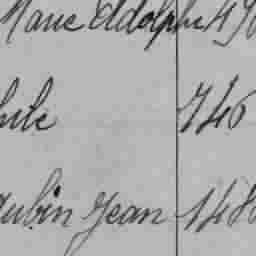 Marie Adolphe 490
hile 746
Aubin Jean 148